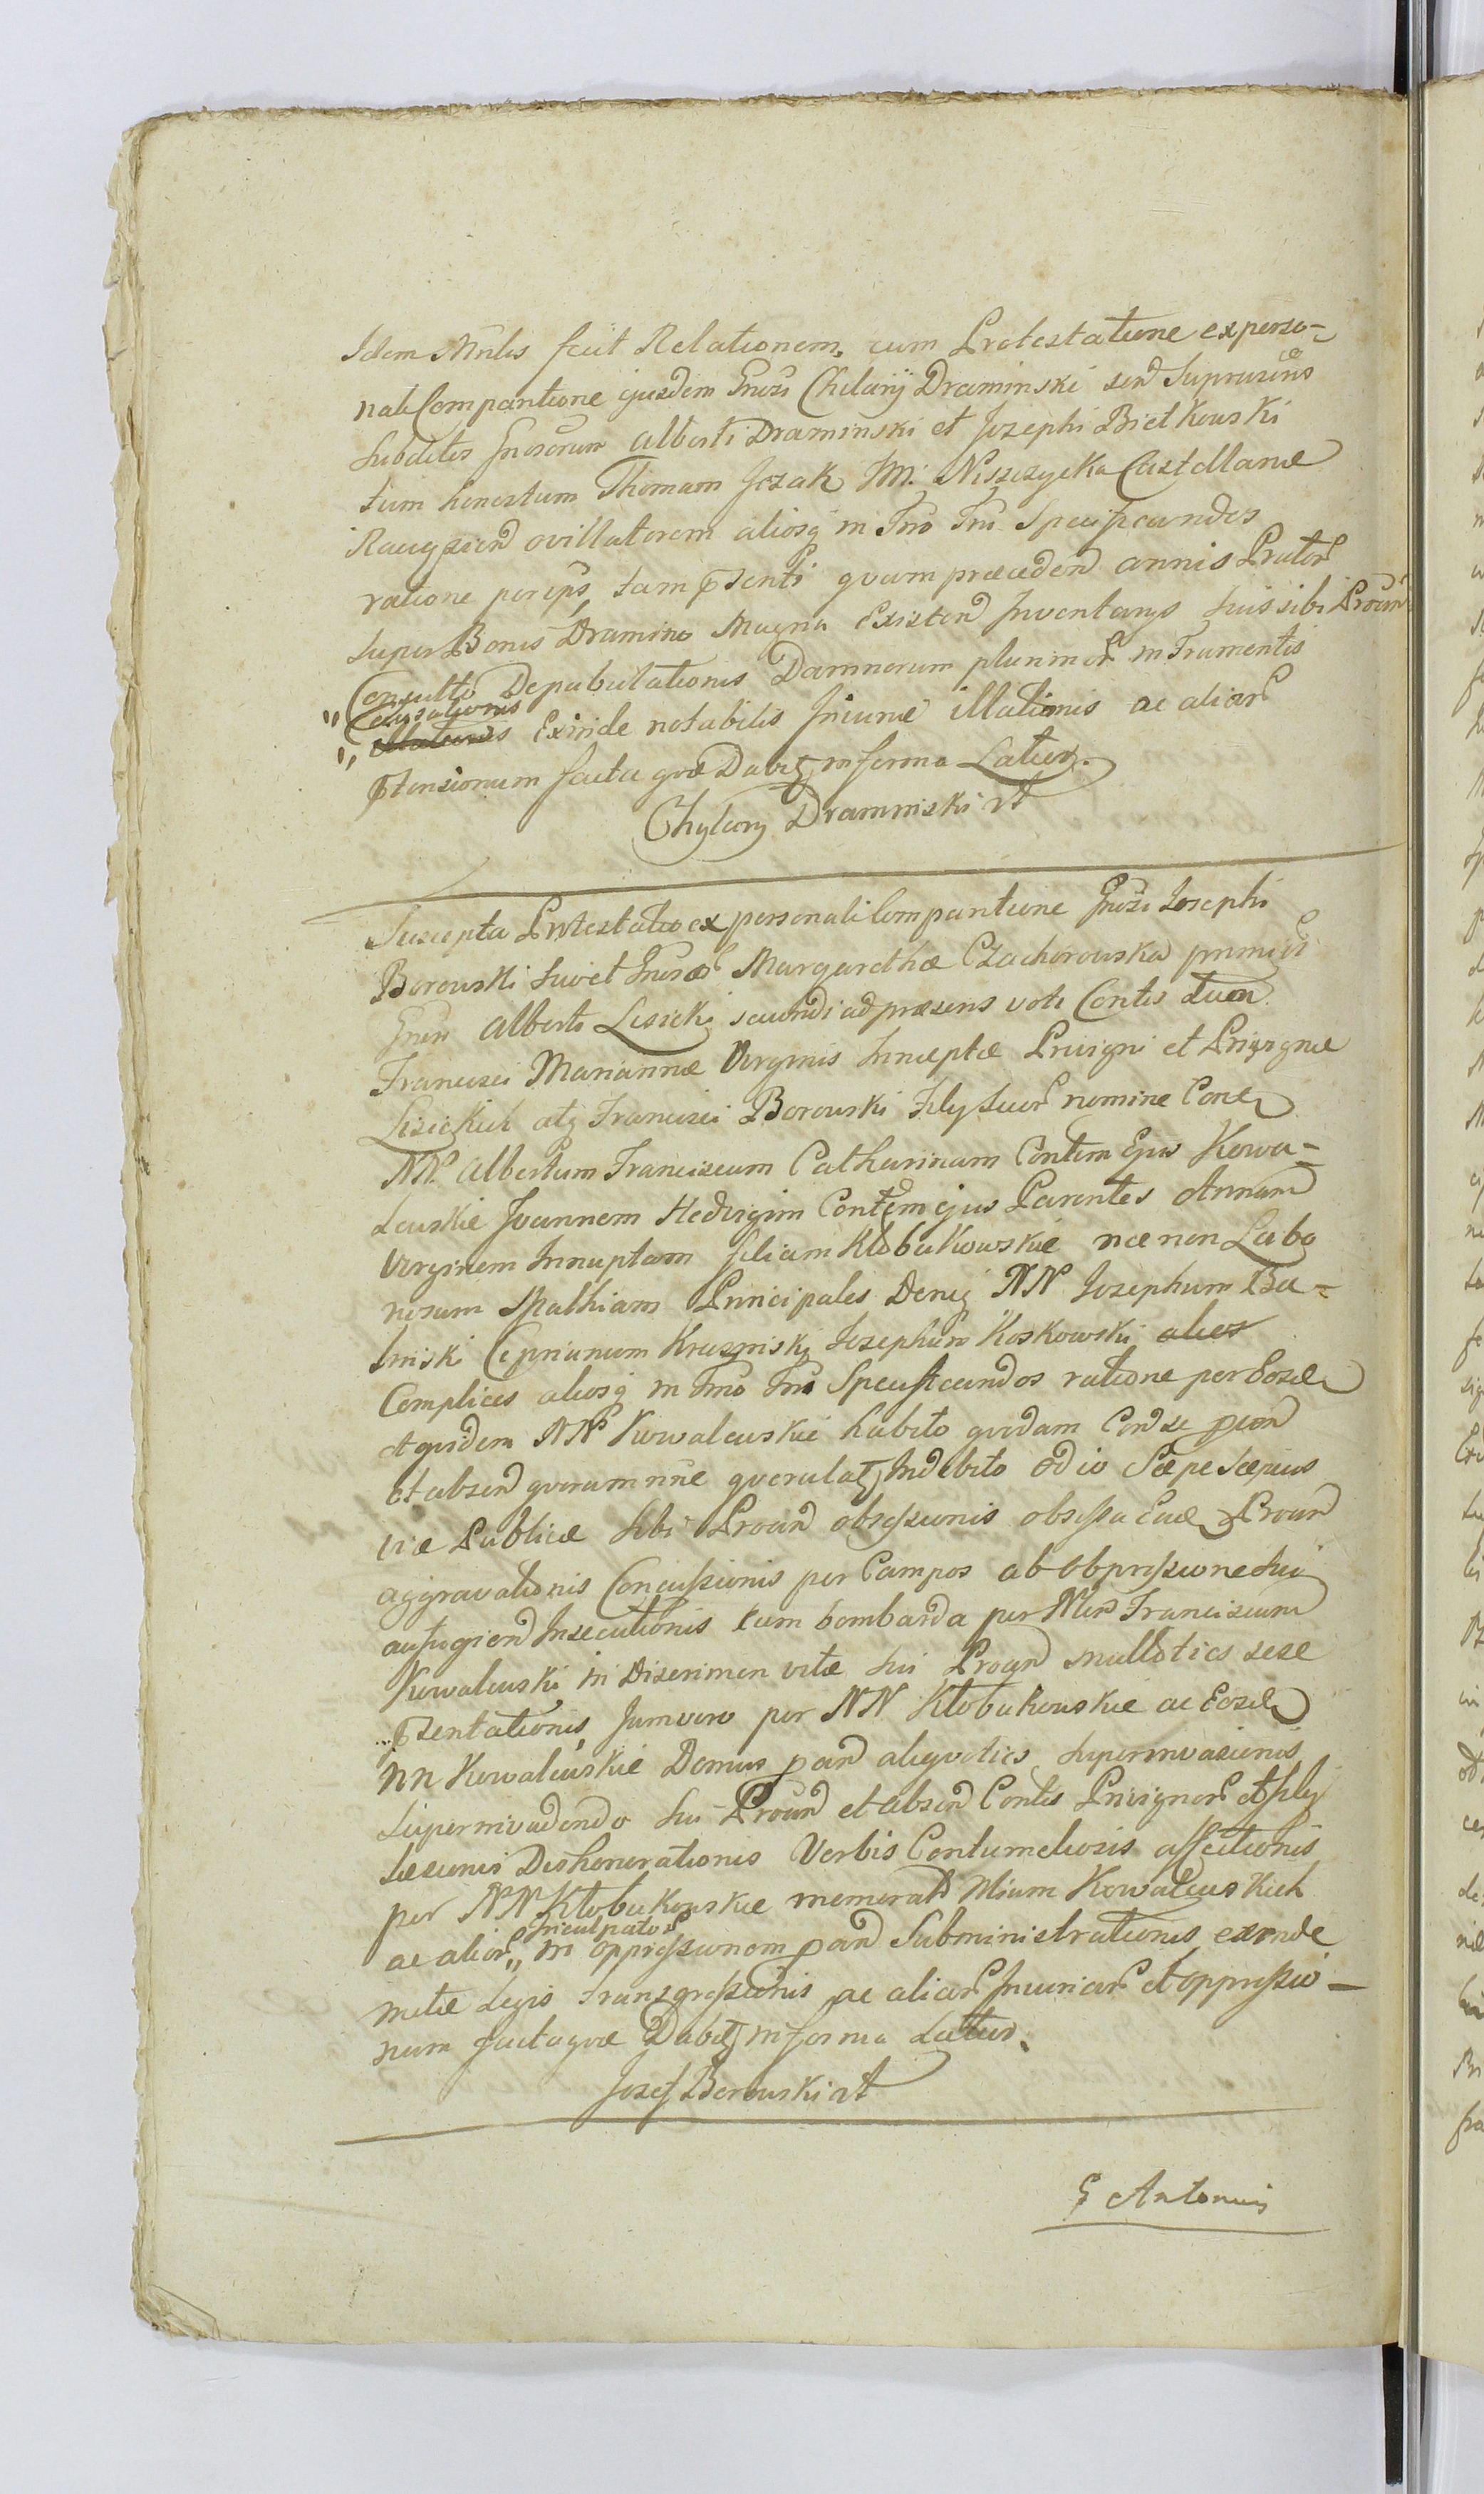 Idem Mnlis fecit Relationem, cum Protestatione ex perso-
nali Compantione ejusdem Gnosi Chilarij Draminski send Suprascris
Subditos Gnosorum Alberti Draminski et Josephi Bietkowski
tum honestum Thomam Jozak IM: Niszczycka Castellanæ
Raciązien ovillatorem aliosq in Tno Tni Specificandos
ratione per eos tam ptenti quam præceden annis Prator
super Bonis Dramino Magna Existen Inventarys suis sibi Proan
Consulto Depabulationis Damnorum plurimor in Frumentis
" Causationis
" Exinde notabilis Iniuriæ illationis ac aliar
ptensionum facta quæ Dabitq in forma Latior.
Chylary Dramniski mp
Suscepta Protestatio ex personali Compantione Gnosi Josephi
Borowski suo et Gnosæ Margarethæ Czachorowska primi
Gnosi Alberti Lisicki secundi ad præsens voti Contis tum
Francisci Mariannæ Virginis Innuptæ Privigni et Privignæ
Lisickich atq Francisci Borowski Filij suor nomine Con
NN. Albertum Franciscum Catharinam Contem Ejus Kowa-
lewskie Joannem Hedvigim Contem ejus Parentes Annam
Virginem Innuptam filiam Kłobukowskie nec non Labo
riosum Mathiam Principales Deniq NN Josephum Ba-
Cyprianum Krasniski Josephum Koskowski alios
Complices aliosq in Tno Tni Specificandos ratione per Eosd
et quidem NN Kowalewskie habito quodam Con se pron
et absen quorum nne querulatq Indebito odio Sæpe Sæpius
viæ Publicæ sibi Proan obsessionis obsessa Proan
aggravationis Concussionis per Campos ab obpressione sui
aufugien Insecutionis cum bombarda per Mien Franciscum
Kowalewski in Discrimen vitæ sui Proan multoties sese
ptentationis Jamvero per NN Kłobukowskie ac Eosd
NN Kowalewskie Domus pan aliquoties superinvasionis
Superinvadendo sui Proan et absen Contis Privignor et filij
læsionis Deshonorationis Verbis Contumeliosis affectionis
per NN Kłobukowskie memorat Mium Kowalewskich
Inculpator
ac alior " in oppressionem pan Subministrationis exinde
metæ Legis transgressionis ac aliar Iniuriar et oppressio-
num facta quæ Dabitq in forma Latior.
Josef Borowski mp
G Antonius